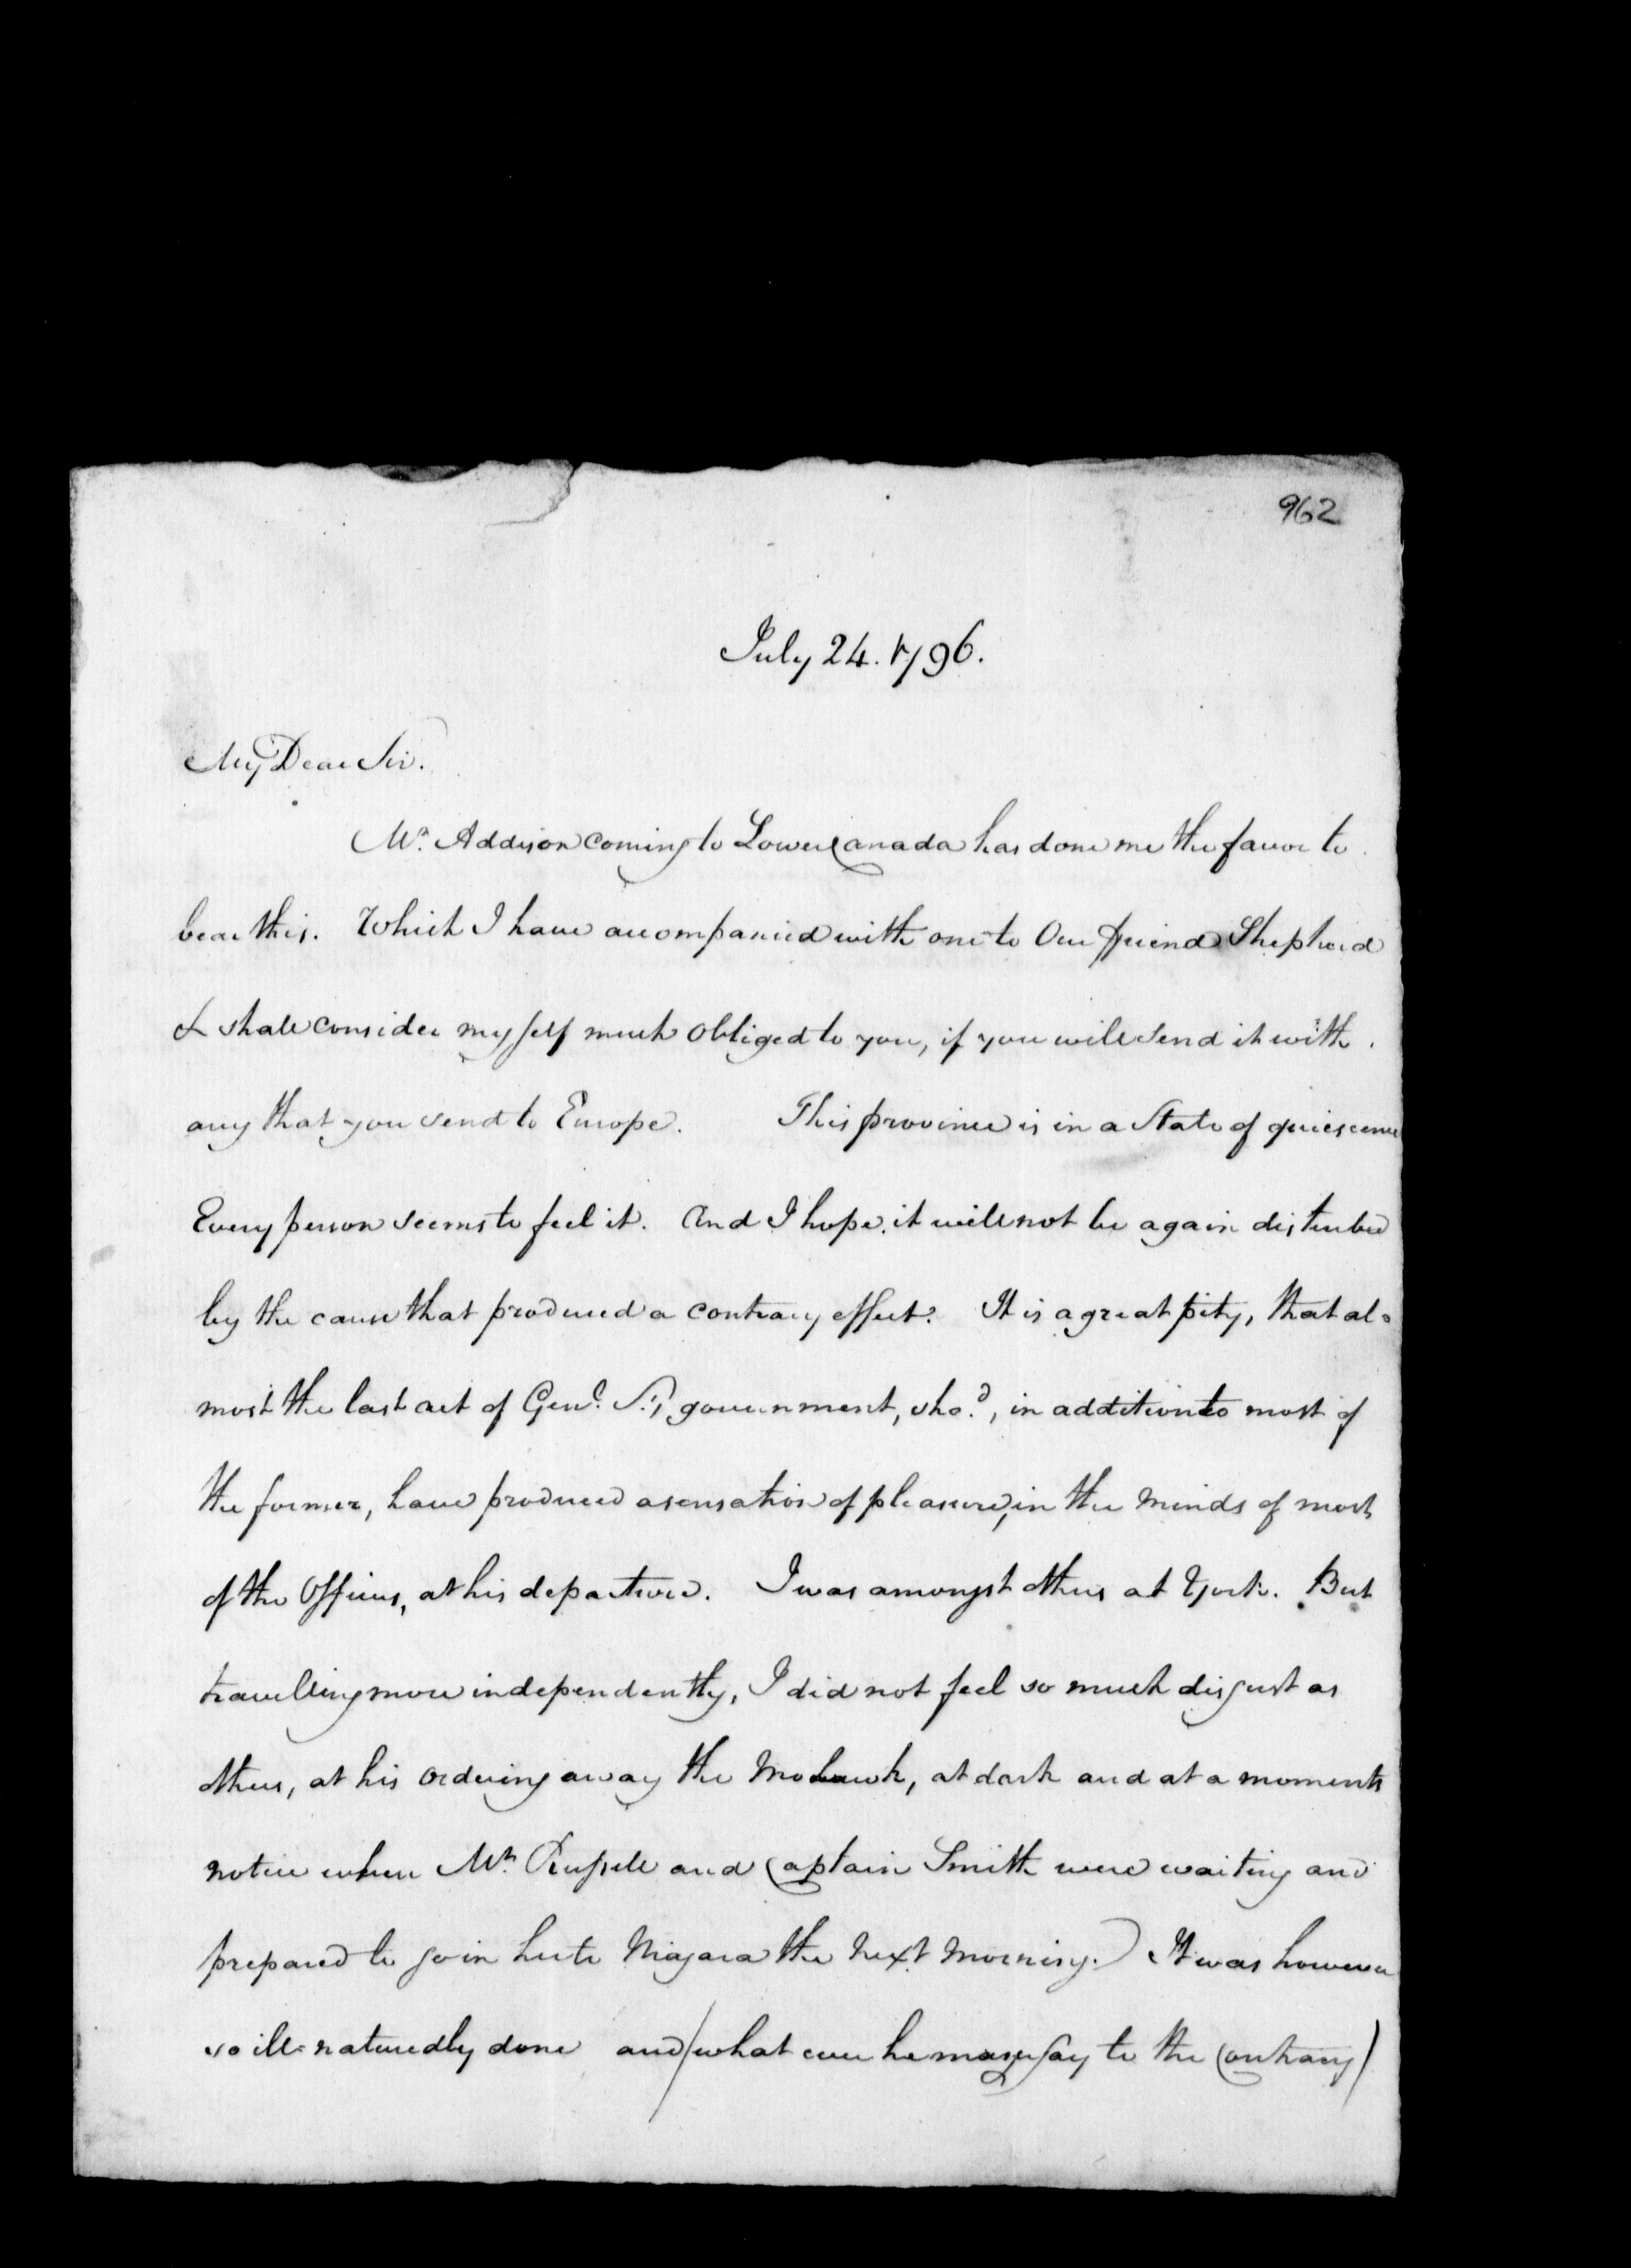 962
July 24. 1796.
My Dear Sir.
Mr. Addison coming to Lower Canada has done me the favor to
bear this. Which I have accompanied with one to Our friend Shepherd
& shall consider my self much obliged to you, if you will send it with
any that you send to Europe. This province is in a State of quiescence
Every person seems to feel it. And I hope it will not be again disturbed
by the cause that produced a contrary effect. It is a great pity, that al=
most the last act of Genl. S.'s government, shod., in addition to most of
the former, have produced a sensation of pleasure, in the minds of most
of the Officers, at his departure. I was amongst others at York. But
travelling more independently, I did not feel so much disgust as
others, at his ordering away the Mohawk, at dark and at a moments
notice when Mr. Russell and Captain Smith were waiting and
prepared to go in her to Niagara the next morning. It was however
so ill=naturedly done and/what ever he may say to the Contrary/